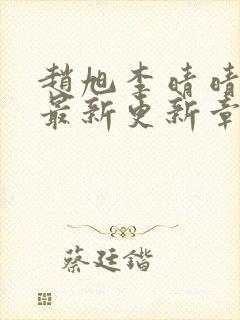 趙旭李晴晴
最新更新章
蔡廷鍇